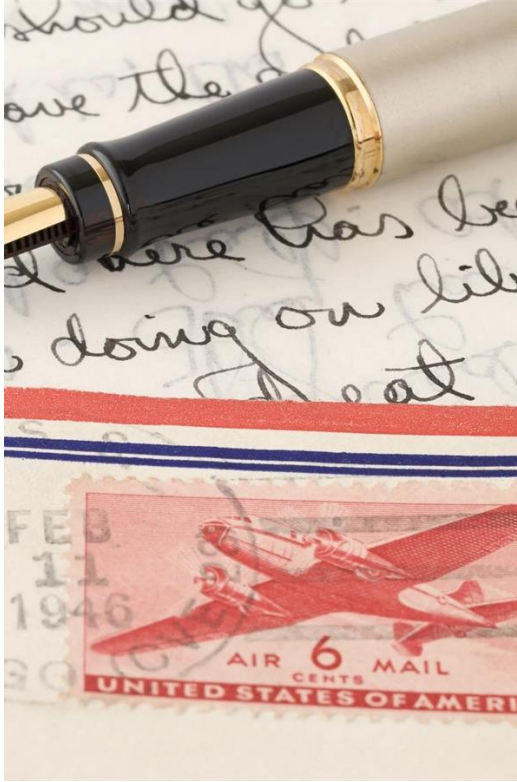 should go
ave the
here has be
doing on lib
eat
FEB
11
1946
GO
AIR 6 MAIL
CENTS
UNITED STATES OF AMERI